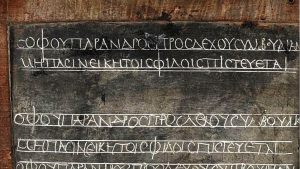 CΟΦΟΥΠΑΡΑΝΔΡΟCΠΡΟCΔΕΧΟΥCΥΝΒΟΥΛΙΑΝ
ΜΗΠΑCΙΝΕΙΚΗΤΟΙCΦΙΛΟΙCΠΙCΤΕΥΕΤΑΙ
ΟΦΟΥΠΑΡΑΝΔΡΟCΠΡΟCΔΕΧΟΥCΥΝΒΟΥΛΙΑ
ΜΗΠΑCΙΝΕΙΚΗΤΟΙCΦΙΛΟΙCΠΙCΤΕΥΕΤΑΙ